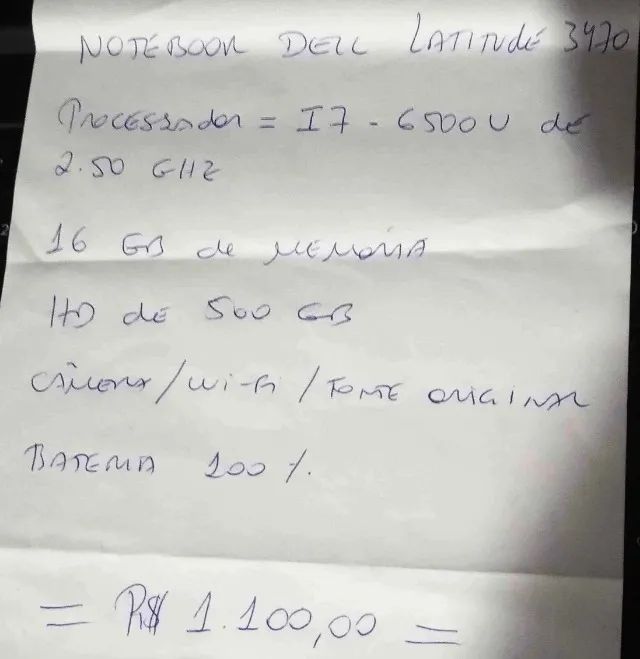 NOTEBOOK DELL LATITUDE 3470
PROCESSADOR = I7 - 6500U de
2.50 GHZ
16 GB de MEMÓRIA
HD de 500 GB
CÂMERA / WI-FI / FONTE ORIGINAL
BATERIA 100%.
= R$ 1.100,00 =